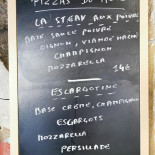 PIZZAS DU MO
LA STEAK AUX POIVRE
BASE SAUCE POIVRÉ
OIGNON, VIANDE HACHÉ
CHAMPIGNON
MOZZARELLA
14€
ESCARGOTINE
BASE CRÈME, CHAMPIGNON
ESCARGOTS
MOZZARELLA
PERSILLADE